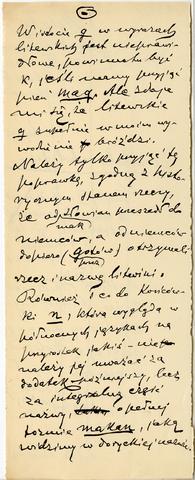 6
W istocie g w wyrazach
litewskich jest nieprawi-
dłowe, powinnoby być
k, jeśli mamy przyjąć
pień mag. Ale zdaje
mi się, że litewskie
g zupełnie w moim wy-
wodzie nie bróździ.
Należy tylko przyjąć tę
poprawkę, zgodną z histo-
rycznym stanem rzeczy,
że od Słowian przeszedł do
mak
niemców, a od niemców
dopiero (gotów) otrzymali
rzecz i nazwę litwini.
Również i co do końców-
ki n, która wygląda w
północnych językach na
przyrostek jakiś — nie
należy jej uważać za
dodatek późniejszy, lecz
za integralną część
nazwy, o pełnej
formie makan, jaką
widzimy w doryckiej nazwie.